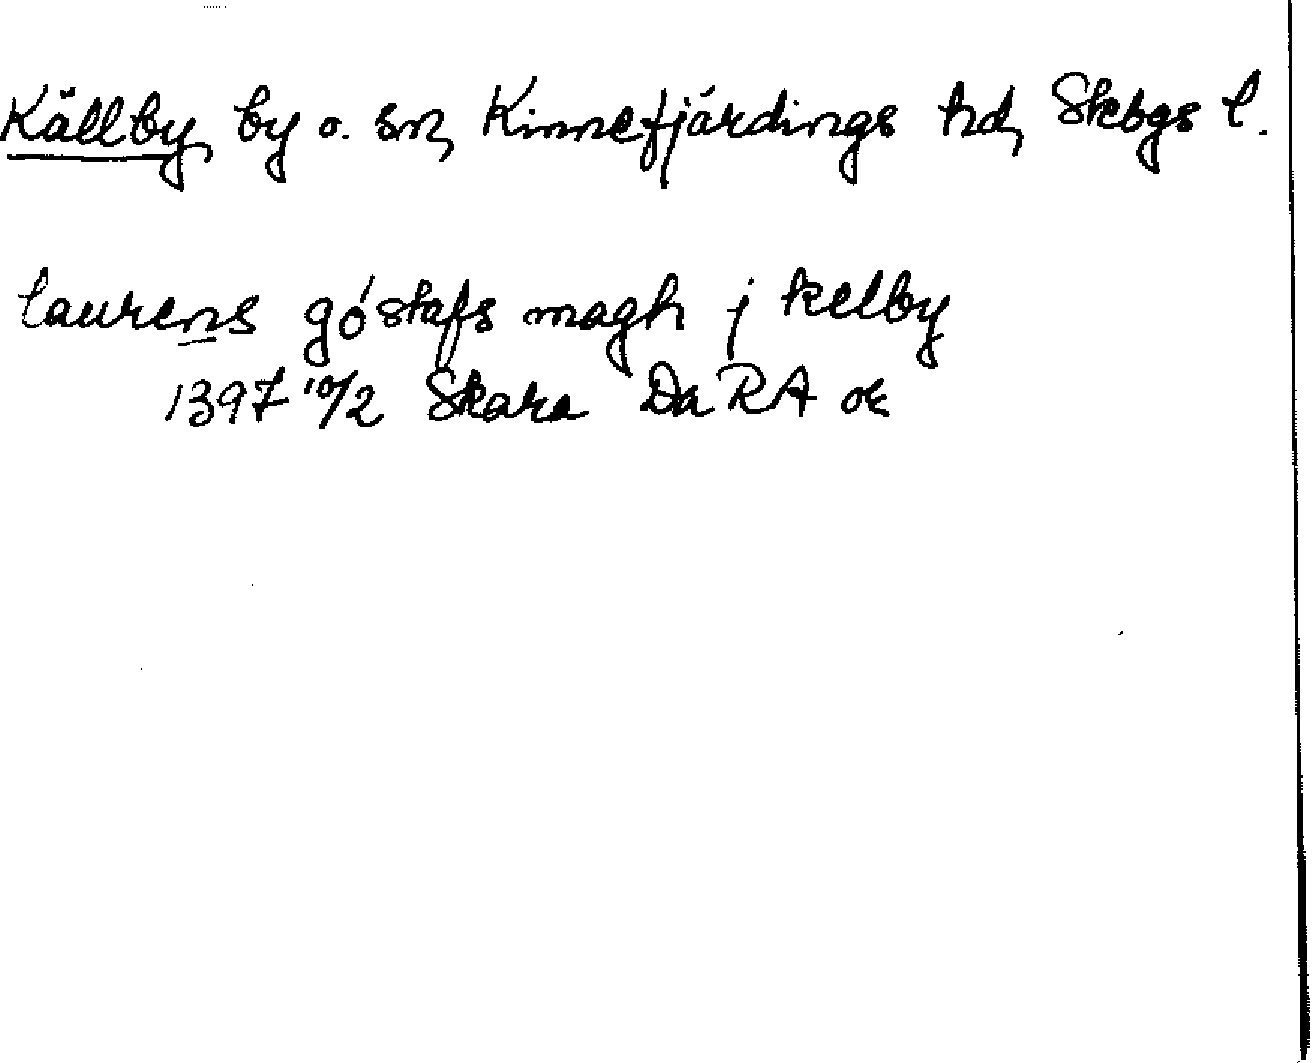 Källby, by o. sn, Kinnefjärdings hd, Skbgs l.
laurens göstafs magh j kelby
1397 10/2 Skara Da RA or